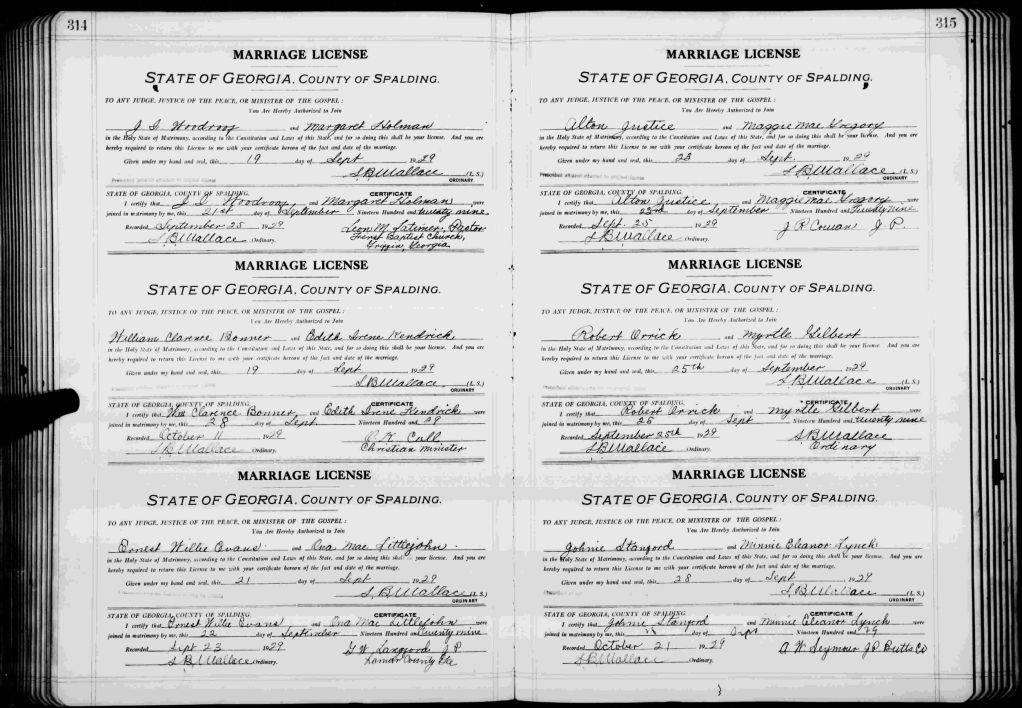 314
MARRIAGE LICENSE
STATE OF GEORGIA, COUNTY OF SPALDING.
TO ANY JUDGE, JUSTICE OF THE PEACE, OR MINISTER OF THE GOSPEL:
You Are Hereby Authorized to Join
J. G. Woodroof and Margaret Holman
in the Holy State of Matrimony, according to the Constitution and Laws of this State, and for so doing this shall be your license. And you are
hereby required to return this License to me with your certificate hereon of the fact and date of the marriage.
Given under my hand and seal, this 19 day of Sept 1929
S.B. Wallace (L. S.)
ORDINARY
STATE OF GEORGIA, COUNTY OF SPALDING. CERTIFICATE
I certify that J. G. Woodroof and Margaret Holman were
joined in matrimony by me, this 21st day of September Nineteen Hundred and twenty nine.
Recorded September 25 1929 Leon M. Latimer, Pastor
S B Wallace Ordinary. First Baptist Church,
Griffin, Georgia
MARRIAGE LICENSE
STATE OF GEORGIA, COUNTY OF SPALDING.
TO ANY JUDGE, JUSTICE OF THE PEACE, OR MINISTER OF THE GOSPEL:
You Are Hereby Authorized to Join
William Clarence Bonner and Edith Irene Kendrick
in the Holy State of Matrimony, according to the Constitution and Laws of this State, and for so doing this shall be your license. And you are
hereby required to return this License to me with your certificate hereon of the fact and date of the marriage.
Given under my hand and seal, this 19 day of Sept 1929
S B Wallace (L. S.)
ORDINARY
STATE OF GEORGIA, COUNTY OF SPALDING. CERTIFICATE
I certify that Wm Clarence Bonner and Edith Irene Kendrick were
joined in matrimony by me, this 28 day of Sept. Nineteen Hundred and 29
Recorded October 11 1929 Call
S B Wallace Ordinary. Christian Minister
MARRIAGE LICENSE
STATE OF GEORGIA, COUNTY OF SPALDING.
TO ANY JUDGE, JUSTICE OF THE PEACE, OR MINISTER OF THE GOSPEL:
You Are Hereby Authorized to Join
Ernest Willie Evans and Ona Mae Littlejohn
in the Holy State of Matrimony, according to the Constitution and Laws of this State, and for so doing this shall be your license. And you are
hereby required to return this License to me with your certificate hereon of the fact and date of the marriage.
Given under my hand and seal, this 21 day of Sept 1929
S. B. Wallace (L. S.)
ORDINARY
STATE OF GEORGIA, COUNTY OF SPALDING. CERTIFICATE
I certify that Ernest Willie Evans and Ona Mae Littlejohn were
joined in matrimony by me, this 22 day of September Nineteen Hundred and twenty nine
Recorded Sept 23 1929 G. W. Langford J.P.
S B Wallace Ordinary. Lamar County Ga
315
MARRIAGE LICENSE
STATE OF GEORGIA, COUNTY OF SPALDING.
TO ANY JUDGE, JUSTICE OF THE PEACE, OR MINISTER OF THE GOSPEL:
You Are Hereby Authorized to Join
Alton Justice and Maggie Mae Gregory
in the Holy State of Matrimony, according to the Constitution and Laws of this State, and for so doing this shall be your license. And you are
hereby required to return this License to me with your certificate hereon of the fact and date of the marriage.
Given under my hand and seal, this 23 day of Sept. 1929
S B Wallace (L. S.)
ORDINARY
STATE OF GEORGIA, COUNTY OF SPALDING. CERTIFICATE
I certify that Alton Justice and Maggie Mae Gregory were
joined in matrimony by me, this 23rd day of September Nineteen Hundred and Twenty nine
Recorded Sept. 25 1929 J R Cowan J. P.
S B Wallace Ordinary.
MARRIAGE LICENSE
STATE OF GEORGIA, COUNTY OF SPALDING.
TO ANY JUDGE, JUSTICE OF THE PEACE, OR MINISTER OF THE GOSPEL:
You Are Hereby Authorized to Join
Robert Orrick and Myrtle Gilbert
in the Holy State of Matrimony, according to the Constitution and Laws of this State, and for so doing this shall be your license. And you are
hereby required to return this License to me with your certificate hereon of the fact and date of the marriage.
Given under my hand and seal, this 25th day of September 1929
S B Wallace (L. S.)
ORDINARY
STATE OF GEORGIA, COUNTY OF SPALDING. CERTIFICATE
I certify that Robert Orrick and Myrtle Gilbert were
joined in matrimony by me, this 25 day of Sept Nineteen Hundred and twenty nine
Recorded September 25th 1929 S B Wallace
S B Wallace Ordinary. Ordinary
MARRIAGE LICENSE
STATE OF GEORGIA, COUNTY OF SPALDING.
TO ANY JUDGE, JUSTICE OF THE PEACE, OR MINISTER OF THE GOSPEL:
You Are Hereby Authorized to Join
Johnie Stanford and Minnie Eleanor Lynch
in the Holy State of Matrimony, according to the Constitution and Laws of this State, and for so doing this shall be your license. And you are
hereby required to return this License to me with your certificate hereon of the fact and date of the marriage.
Given under my hand and seal, this 28 day of Sept 1929
S. B. Wallace (L. S.)
ORDINARY
STATE OF GEORGIA, COUNTY OF SPALDING. CERTIFICATE
I certify that Johnie Stanford and Minnie Eleanor Lynch were
joined in matrimony by me, this day of Sept Nineteen Hundred and 29
Recorded October 21 1929 A. W. Seymour J.P. Butts Co
S B Wallace Ordinary.